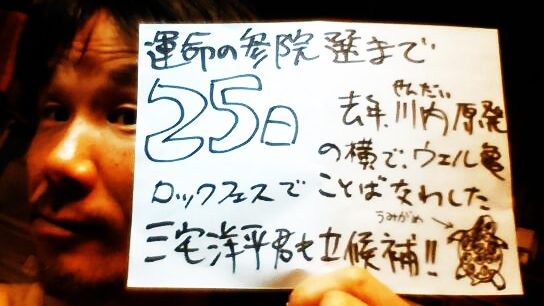 運命の参院選まで
25日
せんだい
去年、川内原発
の横で、ウェル亀
ロックフェスで ことば交わした
うみがめ
三宅洋平君も立候補!!